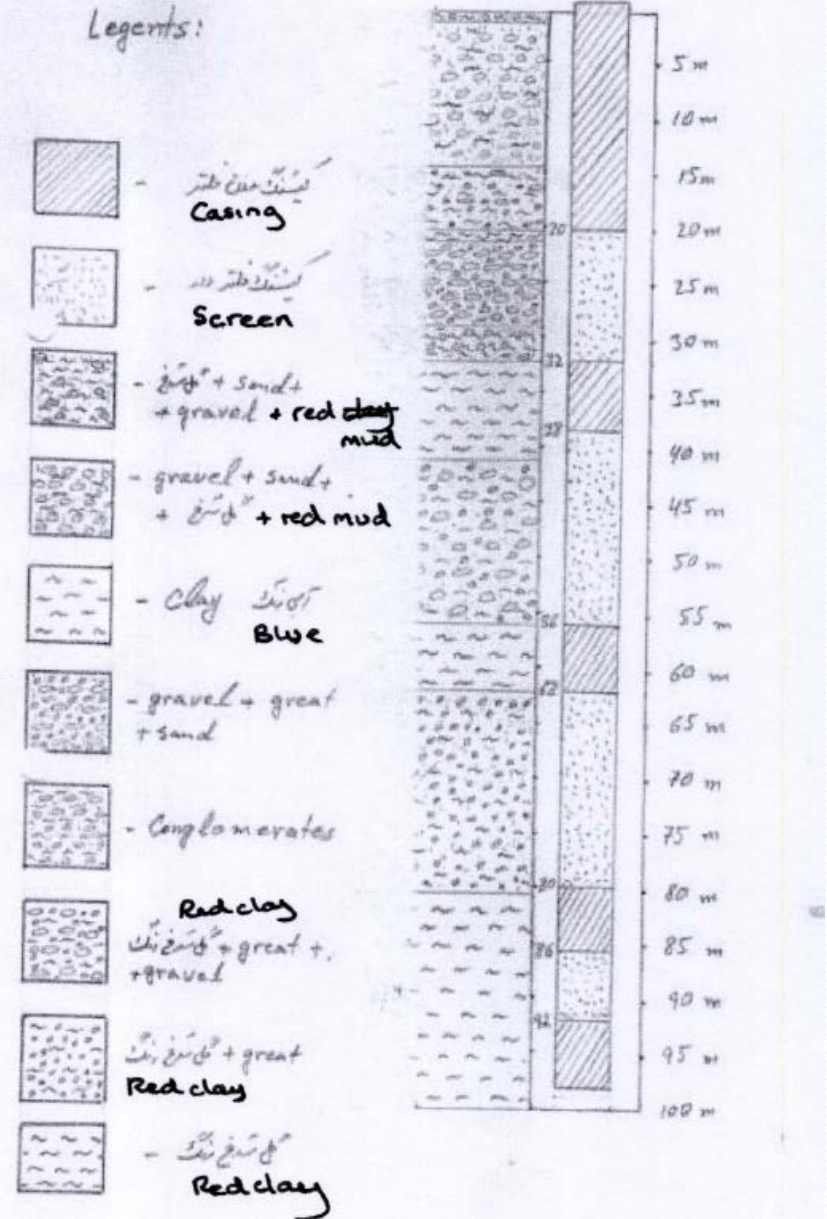 Legents:
- کیسنگ بدون فلتر
Casing
- کیسنگ فلتر دار
Screen
- گل سرخ + sand +
+ gravel + red clay
mud
- gravel + sand +
+ گل سرخ + red mud
- Clay آبی رنگ
Blue
- gravel + great
+ sand
- Conglomerates
Red clay
گل سرخ رنگ + great +
+ gravel
گل سرخ رنگ + great
Red clay
- گل سرخ رنگ
Red clay
5 m
10 m
15 m
20 20 m
25 m
30 m
32
35 m
38
40 m
45 m
50 m
56 55 m
60 m
62
65 m
70 m
75 m
80 80 m
86 85 m
90 m
92
95 m
100 m